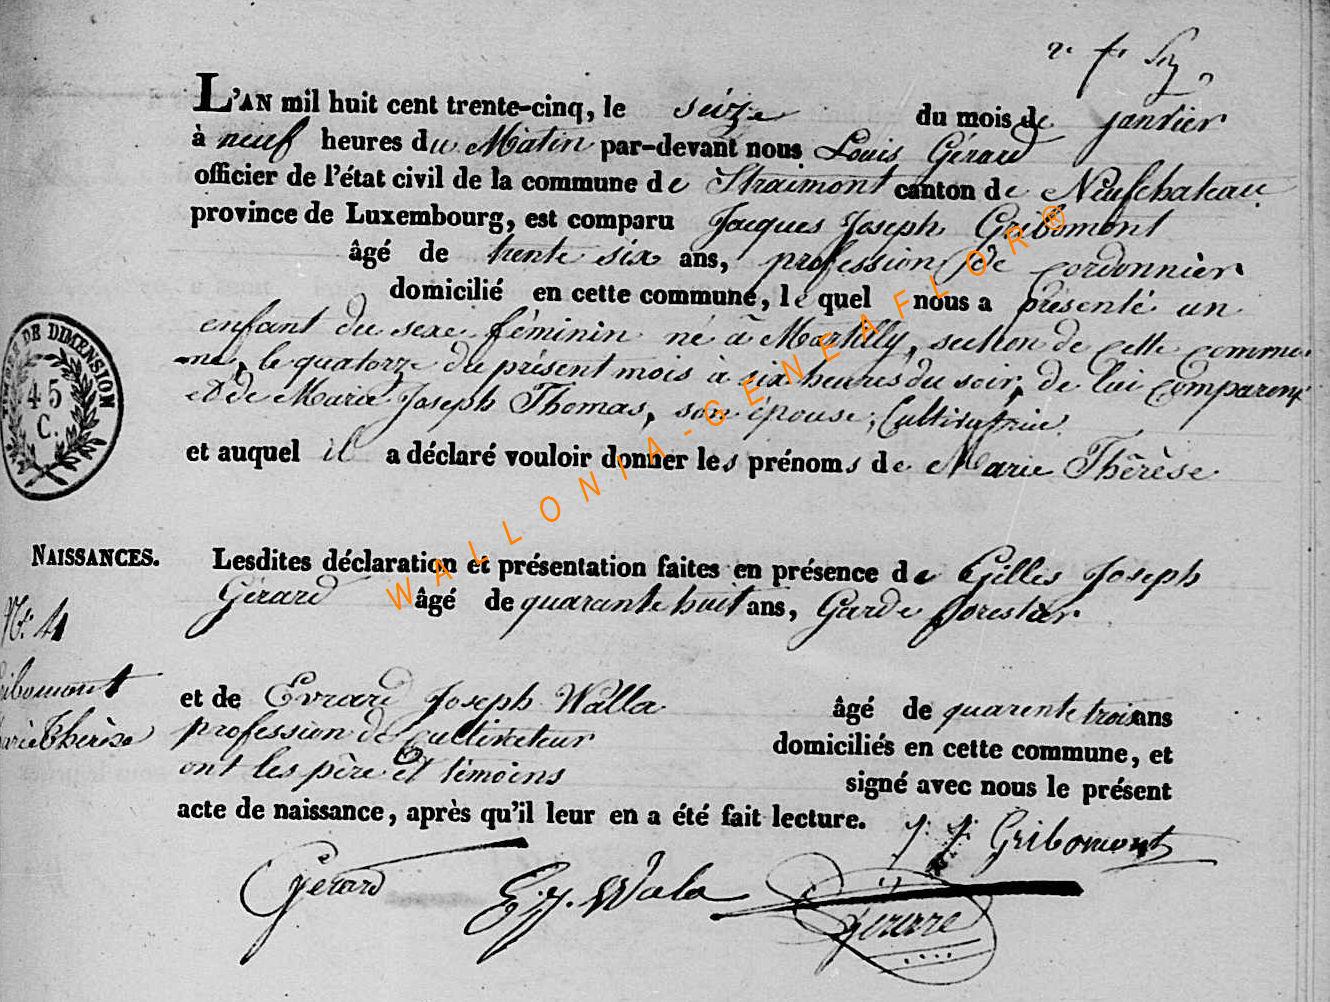 L'AN mil huit cent trente-cinq, le seize du mois de janvier
à neuf heures du Matin par-devant nous Louis Gérard
officier de l'état civil de la commune de Straimont canton de Neufchateau
province de Luxembourg, est comparu Jacques Joseph Gribomont
âgé de trente six ans, profession de cordonnier
domicilié en cette commune, lequel nous a présenté un
enfant du sexe féminin né à Martilly, section de cette commu-
ne, le quatorze du présent mois à six heures du soir, de lui comparent
et de Marie Joseph Thomas, son épouse, Cultivatrice
et auquel il a déclaré vouloir donner les prénoms de Marie Thérèse
TIMBRE DE DIMENSION
45
C.
NAISSANCES.
Lesdites déclaration et présentation faites en présence de Gilles Joseph
Gérard âgé de quarante huit ans, Garde forestier
N° 4
ribomont
arie Thérèse
et de Evrard Joseph Walla âgé de quarente trois ans
profession de Cultivateur domiciliés en cette commune, et
ont les père et témoins signé avec nous le présent
acte de naissance, après qu'il leur en a été fait lecture.
J. J. Gribomont
Gérard E. J. Wala Gérard
WALLONIA-GENEAFLOR®